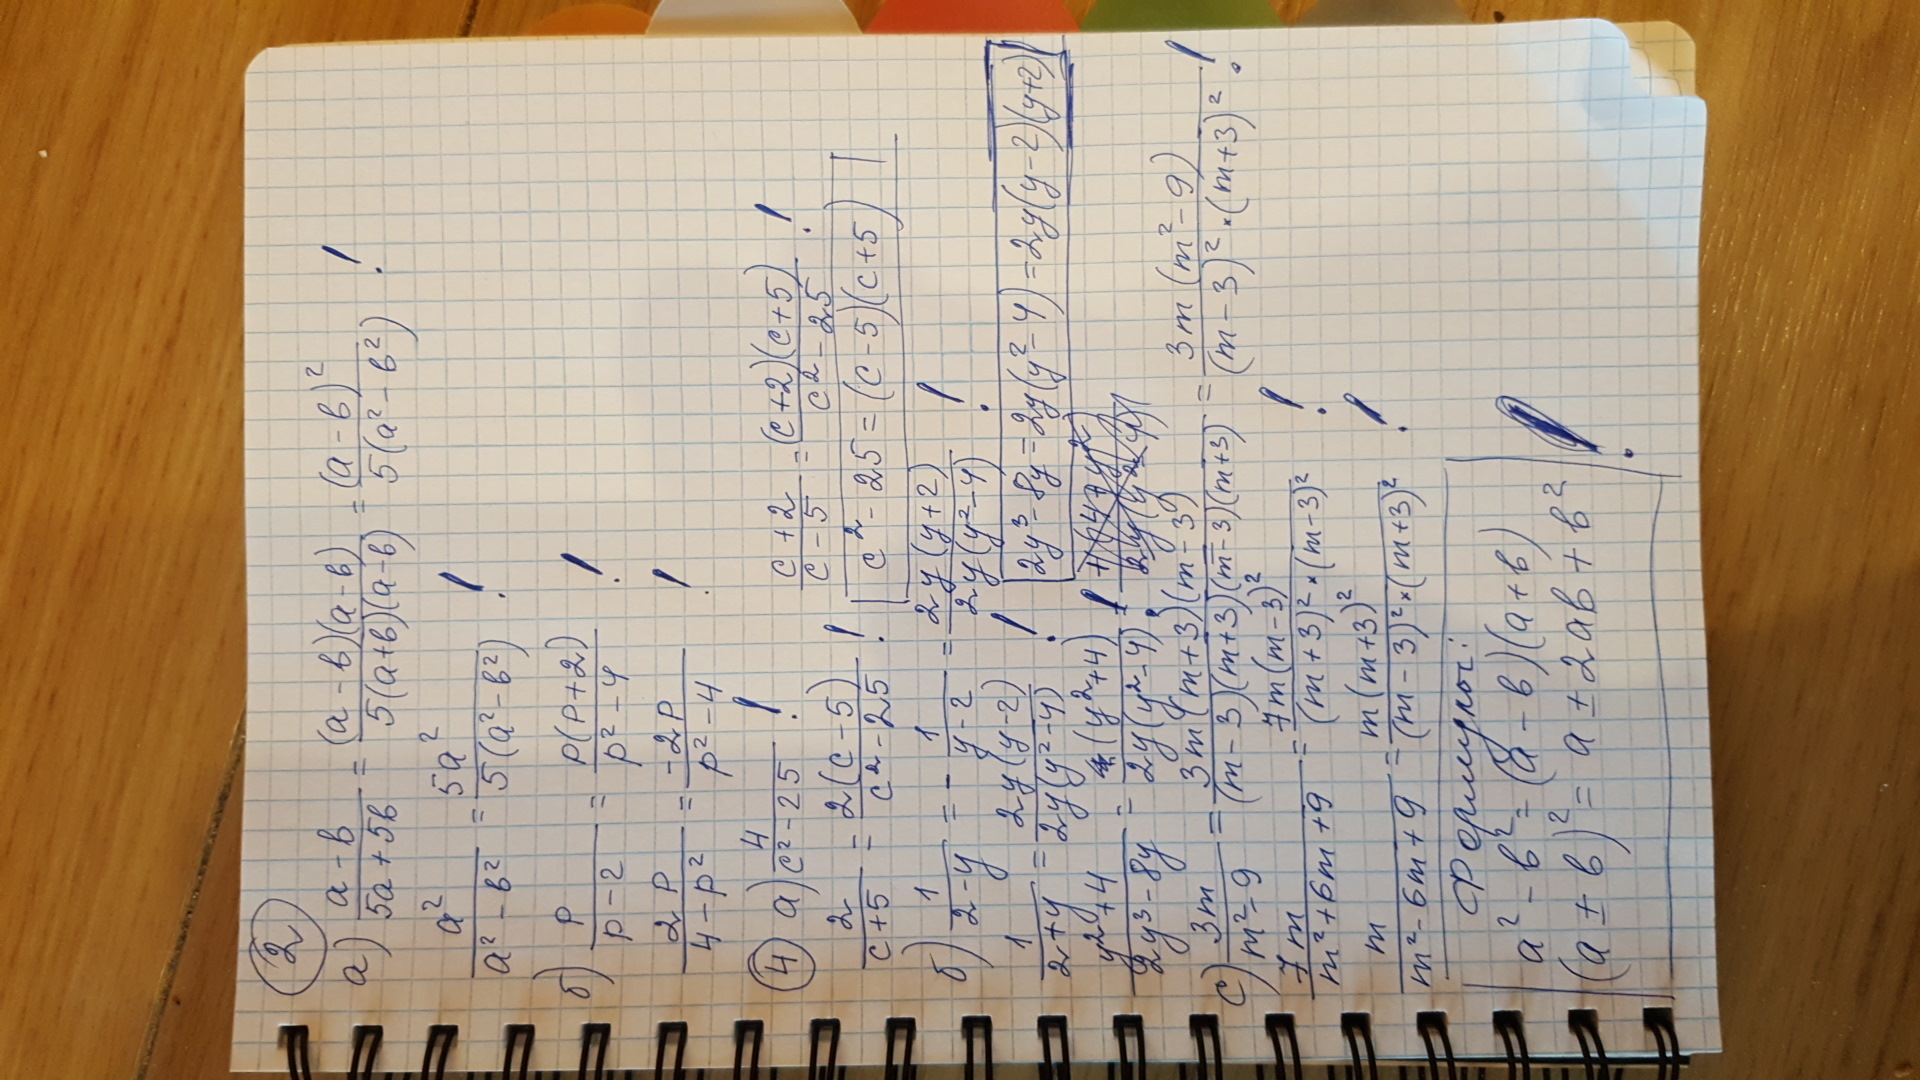 2
а) (a-b)/(5a+5b) = (a-b)(a-b)/(5(a+b)(a-b)) = (a-b)²/(5(a²-b²)) !
a²/(a²-b²) = 5a²/(5(a²-b²)) !
б) p/(p-2) = p(p+2)/(p²-4) !
2p/(4-p²) = -2p/(p²-4) !
4 а) 4/(c²-25) !
2/(c+5) = 2(c-5)/(c²-25) ! (c+2)/(c-5) = (c+2)(c+5)/(c²-25) !
c²-25=(c-5)(c+5)
б) 1/(2-y) = -1/(y-2) = 2y(y+2)/(2y(y²-4)) !
1/(2+y) = 2y(y-2)/(2y(y²-4)) ! 2y³-8y=2y(y²-4)=2y(y-2)(y+2)
(y²+4)/(2y³-8y) = (y²+4)/(2y(y²-4)) !
с) 3m/(m²-9) = 3m(m+3)(m-3)/((m-3)(m+3)(m-3)(m+3)) = 3m(m²-9)/((m-3)²×(m+3)²) !
7m/(m²+6m+9) = 7m(m-3)²/((m+3)²×(m-3)²) !
m/(m²-6m+9) = m(m+3)²/((m-3)²×(m+3)²) !
Формулы:
a²-b²=(a-b)(a+b)
(a±b)²=a±2ab+b² !